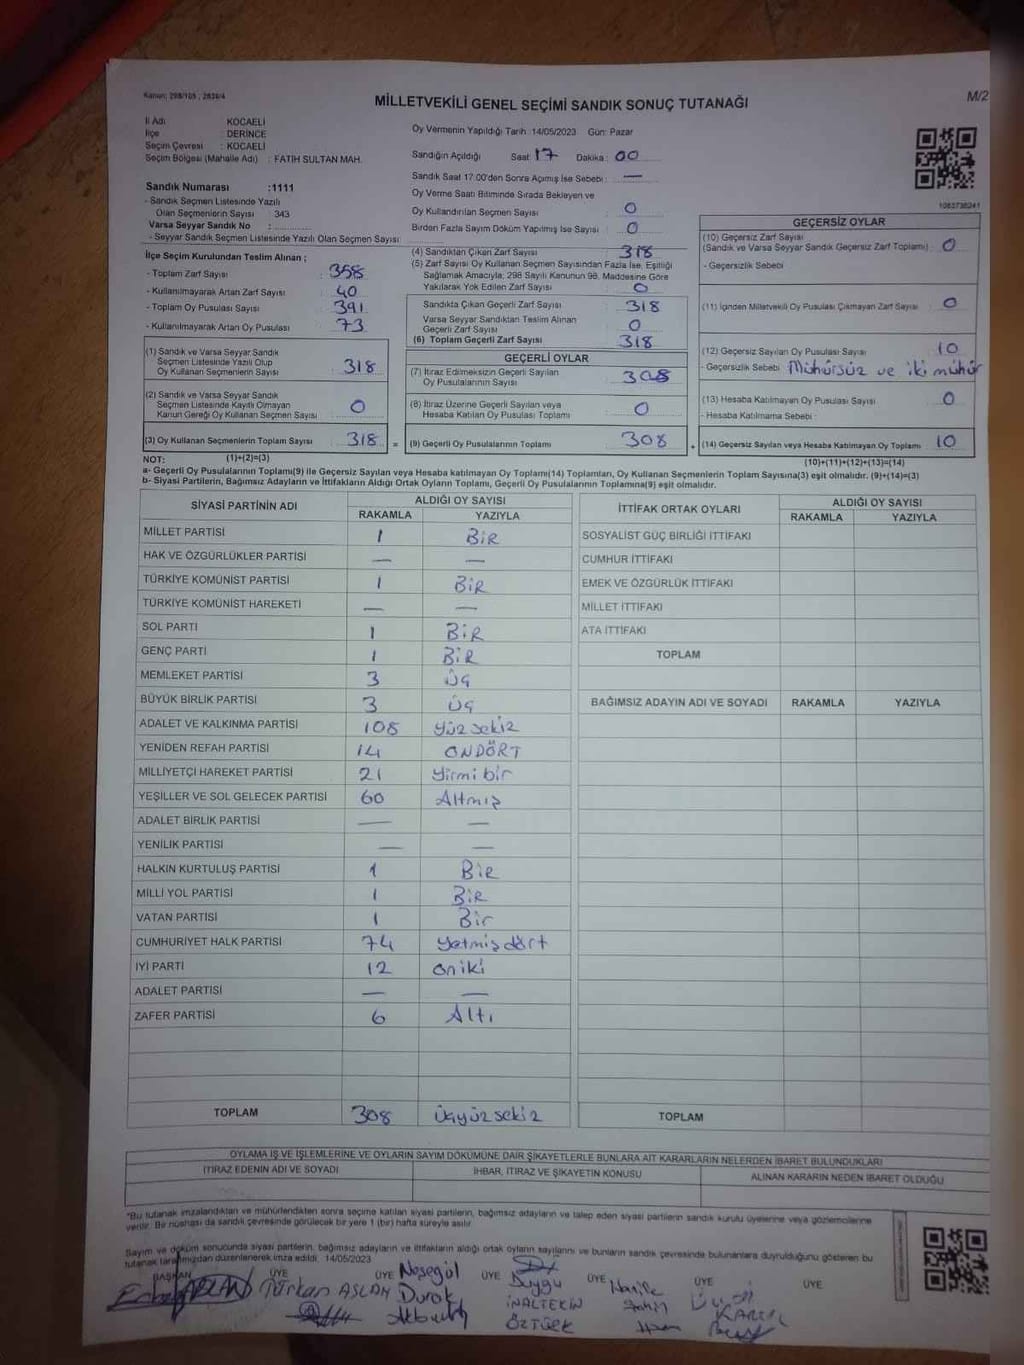 Kanun: 298/105 , 2839/4
MİLLETVEKİLİ GENEL SEÇİMİ SANDIK SONUÇ TUTANAĞI
M/2
İl Adı : KOCAELİ
İlçe : DERİNCE
Seçim Çevresi : KOCAELİ
Seçim Bölgesi (Mahalle Adı) : FATİH SULTAN MAH.
Oy Vermenin Yapıldığı Tarih :14/05/2023 Gün: Pazar
Sandığın Açıldığı Saat 17 Dakika : 00
Sandık Saat 17.00'den Sonra Açılmış İse Sebebi : —
Oy Verme Saati Bitiminde Sırada Bekleyen ve
Oy Kullandırılan Seçmen Sayısı : 0
Birden Fazla Sayım Döküm Yapılmış İse Sayısı : 0
Sandık Numarası :1111
- Sandık Seçmen Listesinde Yazılı
Olan Seçmenlerin Sayısı : 343
Varsa Seyyar Sandık No :
- Seyyar Sandık Seçmen Listesinde Yazılı Olan Seçmen Sayısı
İlçe Seçim Kurulundan Teslim Alınan ;
- Toplam Zarf Sayısı : 358
- Kullanılmayarak Artan Zarf Sayısı : 40
- Toplam Oy Pusulası Sayısı : 391
- Kullanılmayarak Artan Oy Pusulası : 73
(1) Sandık ve Varsa Seyyar Sandık
Seçmen Listesinde Yazılı Olup
Oy Kullanan Seçmenlerin Sayısı : 318
(2) Sandık ve Varsa Seyyar Sandık
Seçmen Listesinde Kayıtlı Olmayan
Kanun Gereği Oy Kullanan Seçmen Sayısı : 0
(3) Oy Kullanan Seçmenlerin Toplam Sayısı : 318 =
(4) Sandıktan Çıkan Zarf Sayısı : 318
(5) Zarf Sayısı Oy Kullanan Seçmen Sayısından Fazla İse, Eşitliği
Sağlamak Amacıyla; 298 Sayılı Kanunun 98. Maddesine Göre
Yakılarak Yok Edilen Zarf Sayısı : 0
Sandıkta Çıkan Geçerli Zarf Sayısı : 318
Varsa Seyyar Sandıktan Teslim Alınan
Geçerli Zarf Sayısı : 0
(6) Toplam Geçerli Zarf Sayısı : 318
GEÇERLİ OYLAR
(7) İtiraz Edilmeksizin Geçerli Sayılan
Oy Pusulalarının Sayısı : 308
(8) İtiraz Üzerine Geçerli Sayılan veya
Hesaba Katılan Oy Pusulası Toplamı : 0
(9) Geçerli Oy Pusulalarının Toplamı : 308 +
1083738241
GEÇERSİZ OYLAR
(10) Geçersiz Zarf Sayısı
(Sandık ve Varsa Seyyar Sandık Geçersiz Zarf Toplamı) : 0
- Geçersizlik Sebebi
(11) İçinden Milletvekili Oy Pusulası Çıkmayan Zarf Sayısı : 0
(12) Geçersiz Sayılan Oy Pusulası Sayısı : 10
- Geçersizlik Sebebi Mühürsüz ve iki mühür
(13) Hesaba Katılmayan Oy Pusulası Sayısı : 0
- Hesaba Katılmama Sebebi :
(14) Geçersiz Sayılan veya Hesaba Katılmayan Oy Pusulası Toplamı 10
NOT: (1)+(2)=(3) (10)+(11)+(12)+(13)=(14)
a- Geçerli Oy Pusulalarının Toplamı(9) ile Geçersiz Sayılan veya Hesaba katılmayan Oy Toplamı(14) Toplamları, Oy Kullanan Seçmenlerin Toplam Sayısına(3) eşit olmalıdır. (9)+(14)=(3)
b- Siyasi Partilerin, Bağımsız Adayların ve İttifakların Aldığı Ortak Oyların Toplamı, Geçerli Oy Pusulalarının Toplamına(9) eşit olmalıdır.
SİYASİ PARTİNİN ADI ALDIĞI OY SAYISI
RAKAMLA YAZIYLA
MİLLET PARTİSİ 1 BİR
HAK VE ÖZGÜRLÜKLER PARTİSİ — —
TÜRKİYE KOMÜNİST PARTİSİ 1 BİR
TÜRKİYE KOMÜNİST HAREKETİ — —
SOL PARTİ 1 BİR
GENÇ PARTİ 1 BİR
MEMLEKET PARTİSİ 3 üç
BÜYÜK BİRLİK PARTİSİ 3 üç
ADALET VE KALKINMA PARTİSİ 108 yüz sekiz
YENİDEN REFAH PARTİSİ 14 ONDÖRT
MİLLİYETÇİ HAREKET PARTİSİ 21 yirmi bir
YEŞİLLER VE SOL GELECEK PARTİSİ 60 Altmış
ADALET BİRLİK PARTİSİ — —
YENİLİK PARTİSİ — —
HALKIN KURTULUŞ PARTİSİ 1 BİR
MİLLİ YOL PARTİSİ 1 BİR
VATAN PARTİSİ 1 Bir
CUMHURİYET HALK PARTİSİ 74 yetmiş dört
İYİ PARTİ 12 oniki
ADALET PARTİSİ — —
ZAFER PARTİSİ 6 Altı
TOPLAM 308 üçyüz sekiz
İTTİFAK ORTAK OYLARI ALDIĞI OY SAYISI
RAKAMLA YAZIYLA
SOSYALİST GÜÇ BİRLİĞİ İTTİFAKI
CUMHUR İTTİFAKI
EMEK VE ÖZGÜRLÜK İTTİFAKI
MİLLET İTTİFAKI
ATA İTTİFAKI
TOPLAM
BAĞIMSIZ ADAYIN ADI VE SOYADI RAKAMLA YAZIYLA
TOPLAM
OYLAMA İŞ VE İŞLEMLERİNE VE OYLARIN SAYIM DÖKÜMÜNE DAİR ŞİKAYETLERLE BUNLARA AİT KARARLARIN NELERDEN İBARET BULUNDUKLARI
İTİRAZ EDENİN ADI VE SOYADI İHBAR, İTİRAZ VE ŞİKAYETİN KONUSU ALINAN KARARIN NEDEN İBARET OLDUĞU
"Bu tutanak imzalandıktan ve mühürlendikten sonra seçime katılan siyasi partilerin, bağımsız adayların ve talep eden siyasi partilerin sandık kurulu üyelerine veya gözlemcilerine
verilir. Bir nüshası da sandık çevresinde görülecek bir yere 1 (bir) hafta süreyle asılır.
Sayım ve döküm sonucunda siyasi partilerin, bağımsız adayların ve ittifakların aldığı ortak oyların sayılarını ve bunların sandık çevresinde bulunanlara duyrulduğunu gösteren bu
tutanak tarafımızdan düzenlenerek imza edildi. 14/05/2023
BAŞKAN ÜYE ÜYE ÜYE ÜYE ÜYE ÜYE
ASLAN Türkan ASLAN Neşegül Durak Duygu İNALTEKİN ÖZTÜRK